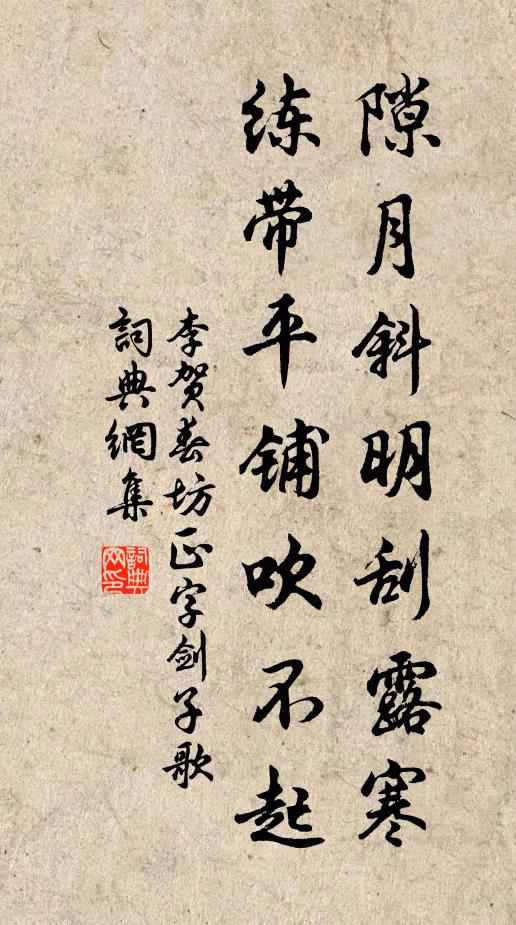 隙月斜明刮露寒
练带平铺吹不起
李贺春坊正字剑子歌
詞典網集
詞典网印